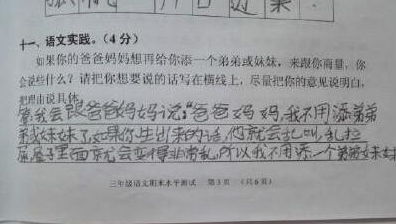 十一、语文实践。(4分)
如果你的爸爸妈妈想再给你添一个弟弟或妹妹，来跟你商量，你
会说些什么？请把你想要说的话写在横线上，尽量把你的意见说明白，
把理由说具体。
答我会跟爸爸妈妈说:"爸爸妈妈,我不用添弟弟
或妹妹了,如果你生出来的话,他就会乱叫,乱拉
屋子里面就会变得非常乱,所以我不用添一个弟弟或妹妹
三年级语文期末水平测试 第5页 (共6页)